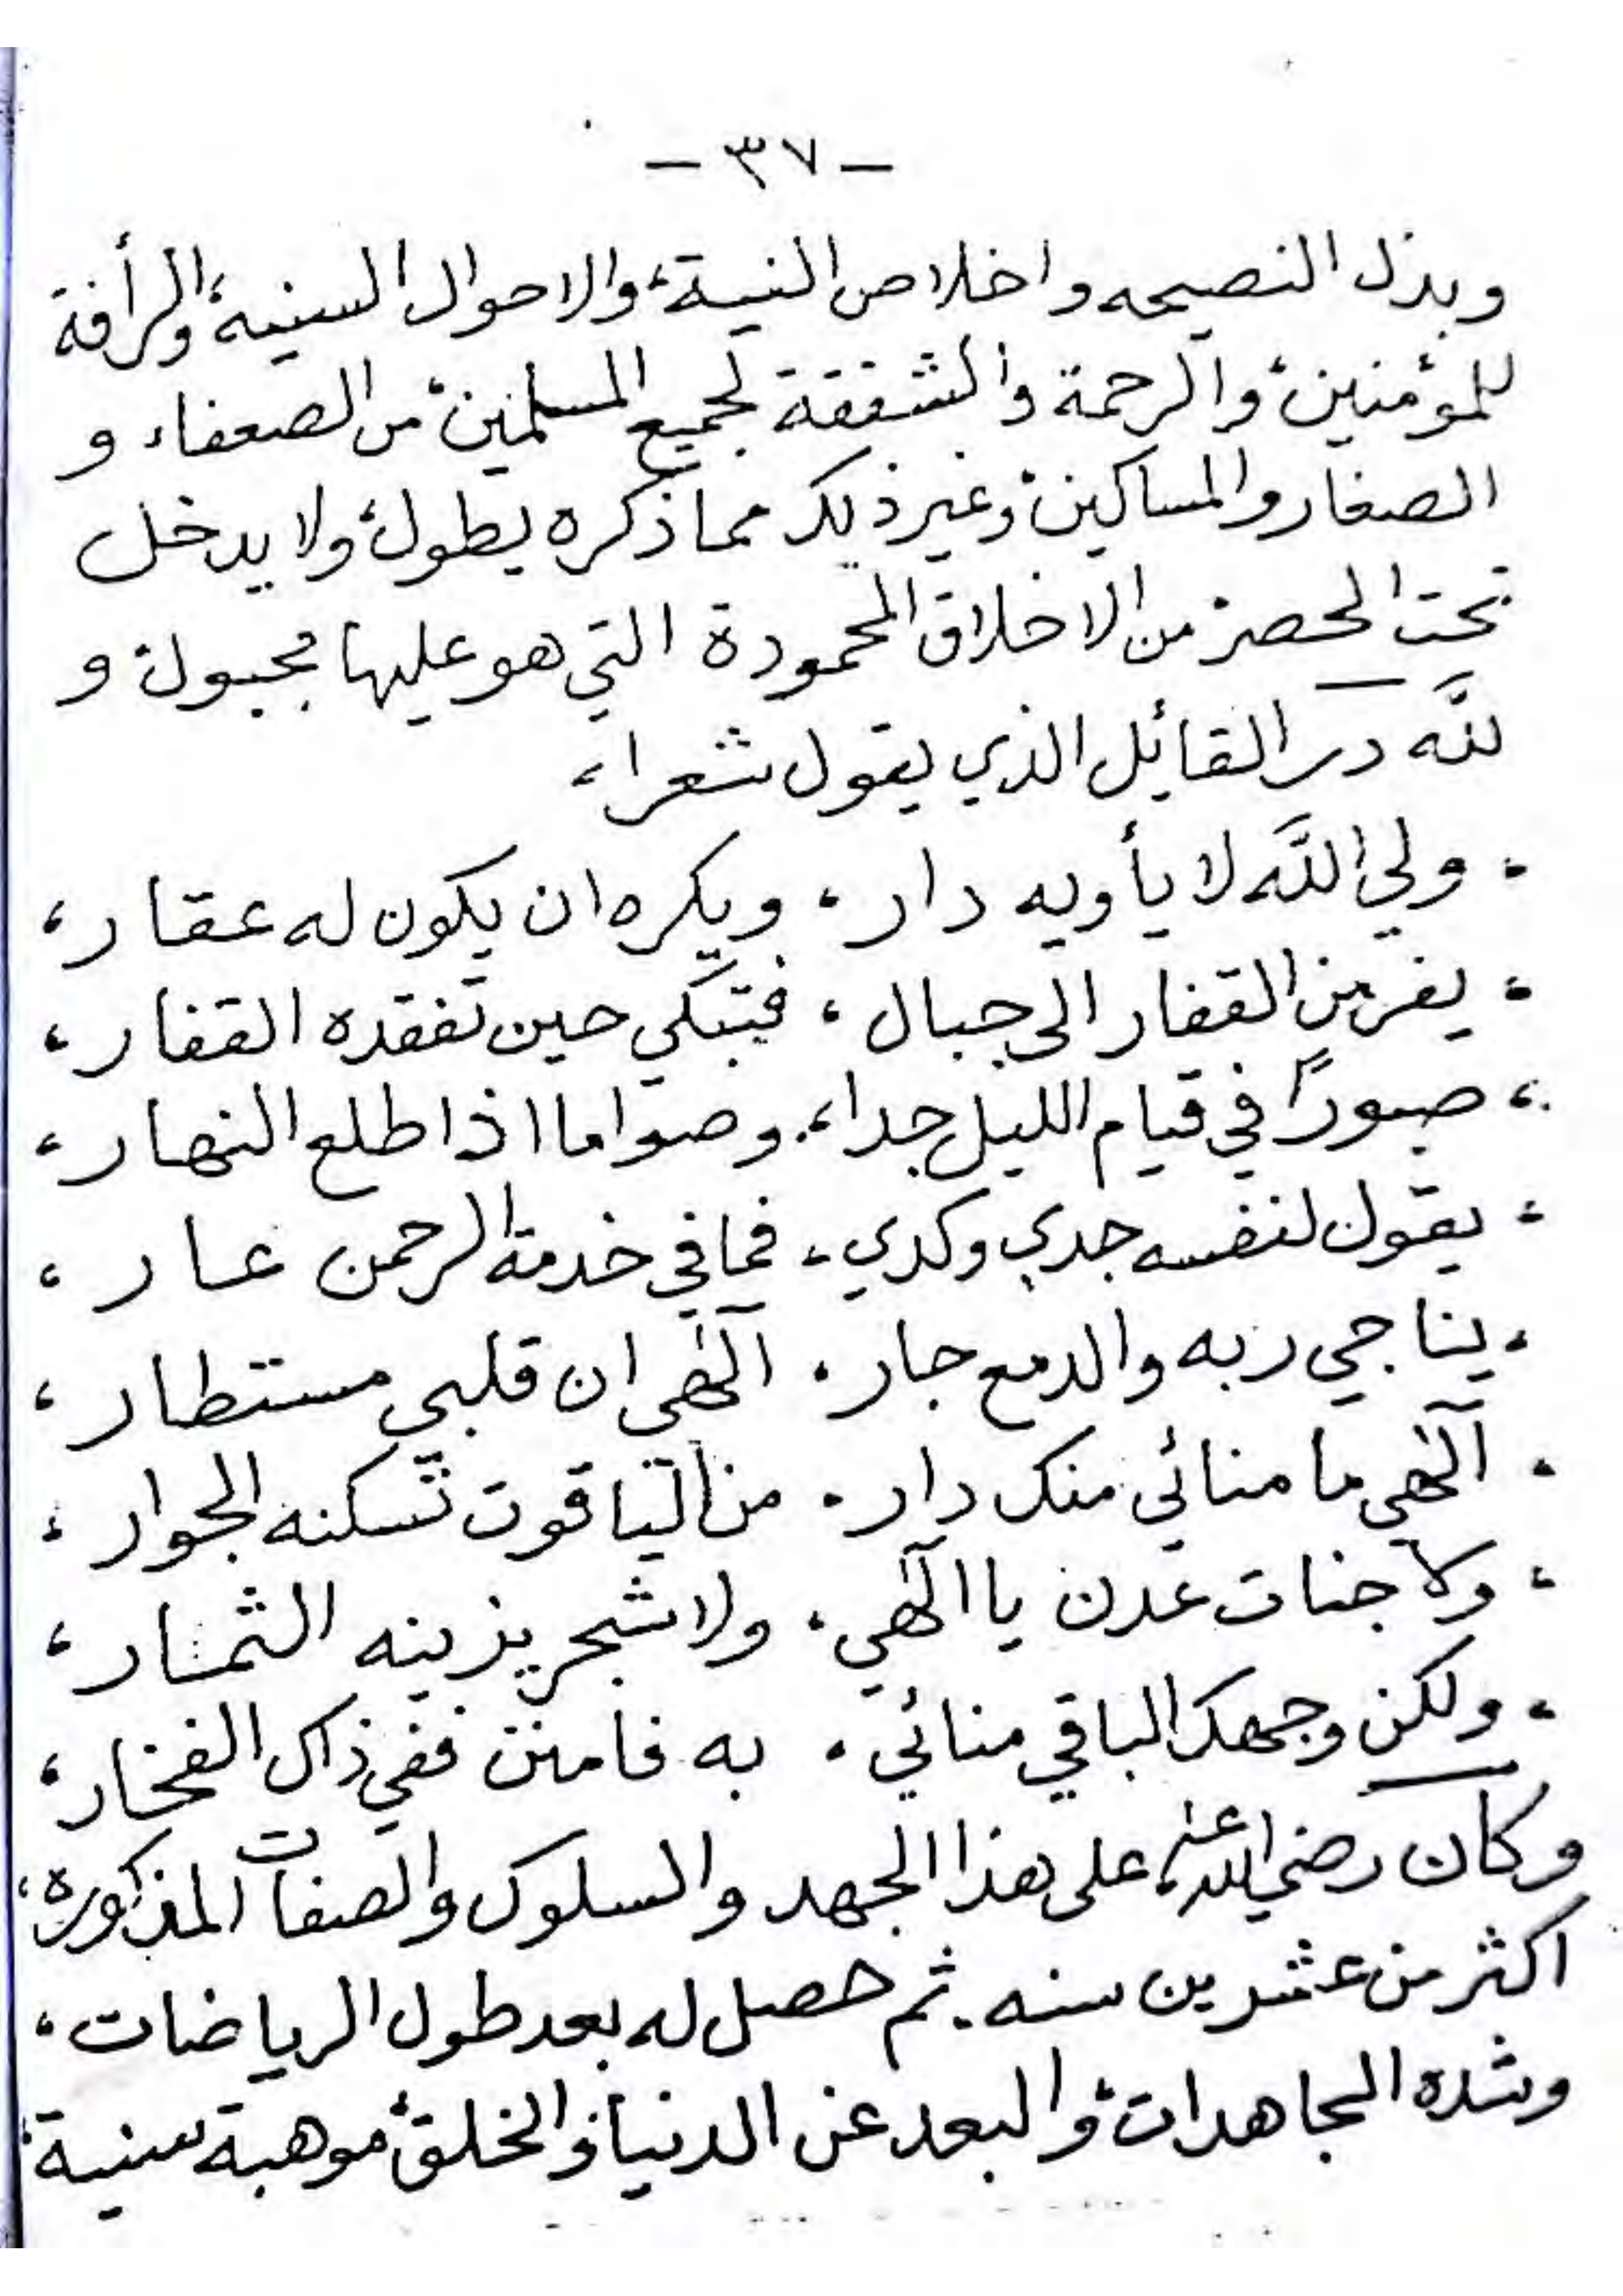 - ٣٧ -
وبذل النصيحه واخلاص النية، والاحوال السنيه، والرأفة
للمؤمنين، والرحمة والشفقة لجميع المسلمين، من الضعفاء و
الصغار والمساكين، وغير ذلك مما ذكره يطول، ولا يدخل
تحت الحصر، من الاخلاق المحمودة التي هو عليها مجبول، و
لله در القائل الذي يقول شعرا،
، ولي الله لا يأويه دار ، ويكره ان يكون له عقار ،
، يفر من القفار الى جبال ، فتبكي حين تفقده القفار ،
، صبورًا في قيام الليل جدا ، وصواما اذا طلع النهار ،
، يقول لنفسه جدي وكدي ، فما في خدمة الرحمن عار ،
، يناجي ربه والدمع جار ، آلهي ان قلبي مستطار ،
، آلهي ما منائي منك دار ، من الياقوت تسكنه الجوار ،
، ولا جنات عدن يا آلهي ، ولا شجر يزينه الثمار ،
، ولكن وجهك الباقي منائي ، به فامنن ففي ذاك الفخار ،
وكان رضي الله عنه، على هذا الجهد والسلوك والصفات المذكوره،
اكثر من عشرين سنه. ثم حصل له بعد طول الرياضات،
وشده المجاهدات، والبعد عن الدنيا والخلق، موهبة سنية،